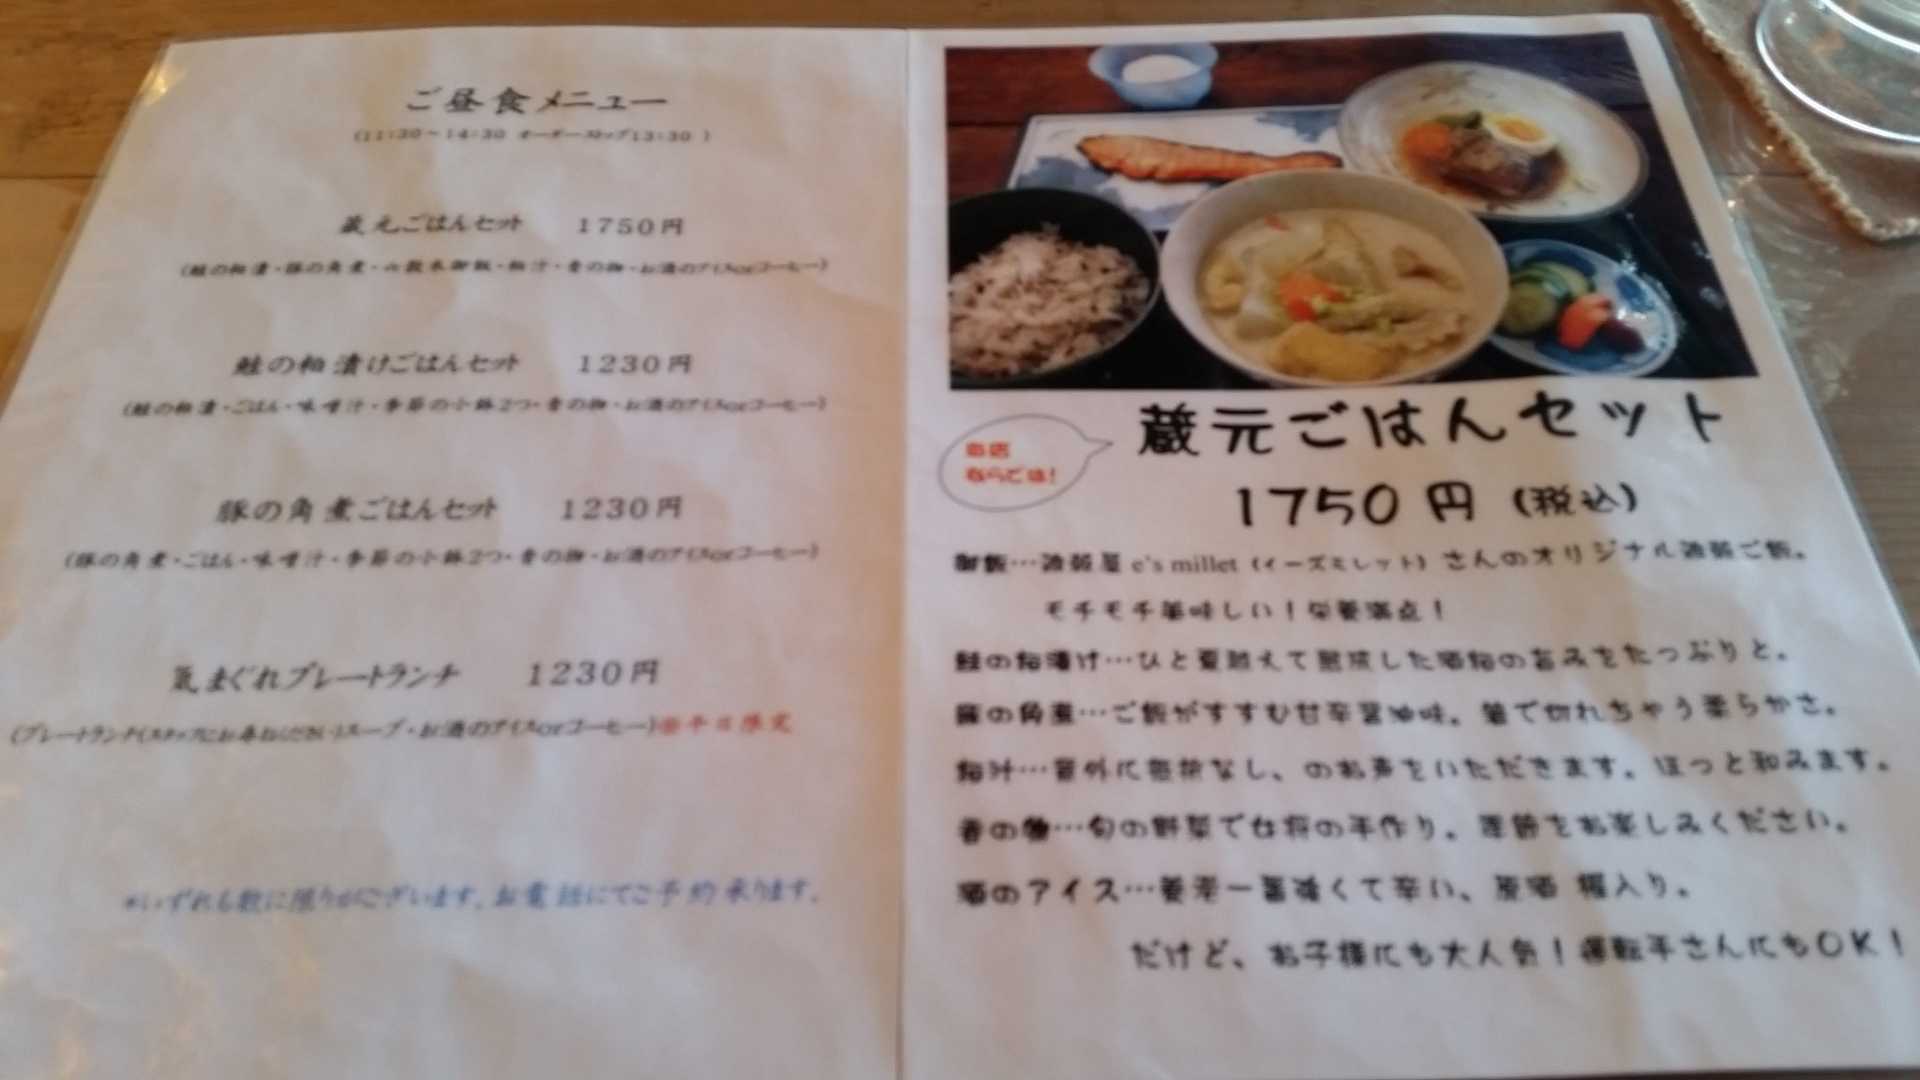 ご昼食メニュー
(11:30~14:30 オーダーストップ13:30 )
蔵元ごはんセット 1750円
(鮭の粕漬・豚の角煮・ 粕汁・香の物・お酒のアイスorコーヒー)
鮭の粕漬けごはんセット 1230円
(鮭の粕漬・ごはん・味噌汁・季節の小鉢2つ・香の物・お酒のアイスorコーヒー)
豚の角煮ごはんセット 1230円
(豚の角煮・ごはん・味噌汁・季節の小鉢2つ・香の物・お酒のアイスorコーヒー)
気まぐれプレートランチ 1230円
(プレートランチ(スタッフにお尋ねください)スープ・お酒のアイスorコーヒー)※平日限定
*いずれも数に限りがございます。お電話にてご予約承ります。
当店
ならでは!
蔵元ごはんセット
1750円(税込)
御飯…雑穀屋 e's millet (イーズミレット) さんのオリジナル雑穀ご飯。
モチモチ美味しい!栄養満点!
鮭の粕漬け…ひと夏越えて熟成した酒粕の旨みをたっぷりと。
豚の角煮…ご飯がすすむ甘辛醤油味。箸で切れちゃう柔らかさ。
粕汁…意外に なし、のお声をいただきます。ほっと和みます。
香の物…旬の野菜で女将の手作り。季節をお楽しみください。
酒のアイス…養老一番 くて辛い、原酒 種入り。
だけど、お子様にも大人気!運転手さんにもOK!